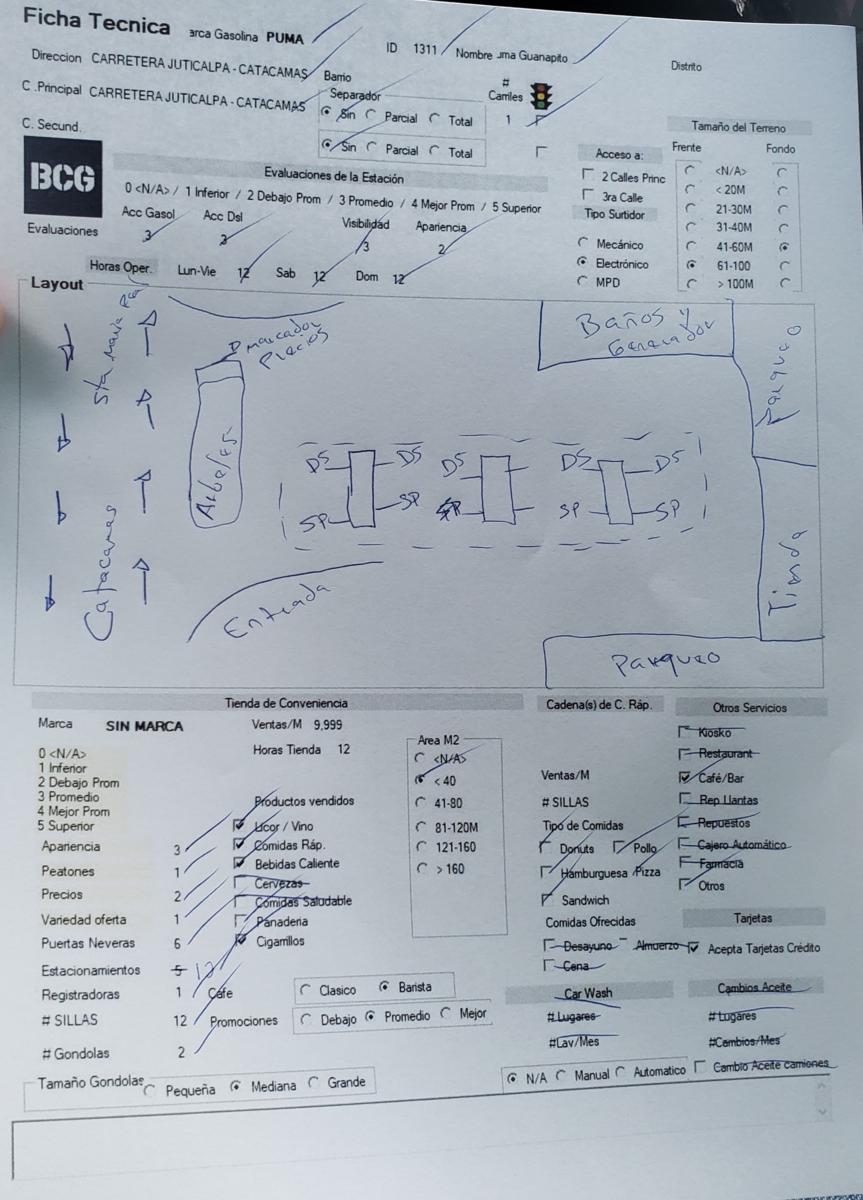 Ficha Tecnica arca Gasolina PUMA ID 1311 Nombre uma Guanapito Distrito
Direccion CARRETERA JUTICALPA - CATACAMAS Barrio
C .Principal CARRETERA JUTICALPA - CATACAMAS
Separador
Sin Parcial Total
# Carriles
1
C. Secund.
Sin Parcial Total
BCG
Evaluaciones de la Estación
0 <N/A> / 1 Inferior / 2 Debajo Prom / 3 Promedio / 4 Mejor Prom / 5 Superior
Acc Gasol Acc Dsl Visibilidad Apariencia
Evaluaciones 3 3 3 2
Horas Oper. Lun-Vie 12 Sab 12 Dom 12
Acceso a:
2 Calles Princ
3ra Calle
Tipo Surtidor
Mecánico
Electrónico
MPD
Tamaño del Terreno
Frente Fondo
<N/A>
< 20M
21-30M
31-40M
41-60M
61-100
> 100M
Layout
Sta Maria
Catacamas
marcador
Precios
Arboles
Baños y
Generador
Parqueo
DS DS DS DS DS
SP SP SP SP SP
Tienda
Entrada
Parqueo
Tienda de Conveniencia
Marca SIN MARCA Ventas/M 9,999
Horas Tienda 12
0 <N/A>
1 Inferior
2 Debajo Prom
3 Promedio
4 Mejor Prom
5 Superior
Apariencia 3
Peatones 1
Precios 2
Variedad oferta 1
Puertas Neveras 6
Estacionamientos 5 12
Registradoras 1
# SILLAS 12
# Gondolas 2
Productos vendidos
Licor / Vino
Comidas Ráp.
Bebidas Caliente
Cervezas
Comidas Saludable
Panaderia
Cigarrillos
Area M2
<N/A>
< 40
41-80
81-120M
121-160
> 160
Cafe Clasico Barista
Promociones Debajo Promedio Mejor
Tamaño Gondolas Pequeña Mediana Grande
Cadena(s) de C. Ráp.
Ventas/M
# SILLAS
Tipo de Comidas
Donuts Pollo
Hamburguesa Pizza
Sandwich
Comidas Ofrecidas
Desayuno Almuerzo
Cena
Car Wash
#Lugares
#Lav/Mes
N/A Manual Automatico
Otros Servicios
Kiosko
Restaurant
Café/Bar
Rep Llantas
Repuestos
Cajero Automático
Farmacia
Otros
Tarjetas
Acepta Tarjetas Crédito
Cambios Aceite
#Lugares
#Cambios/Mes
Cambio Aceite camiones